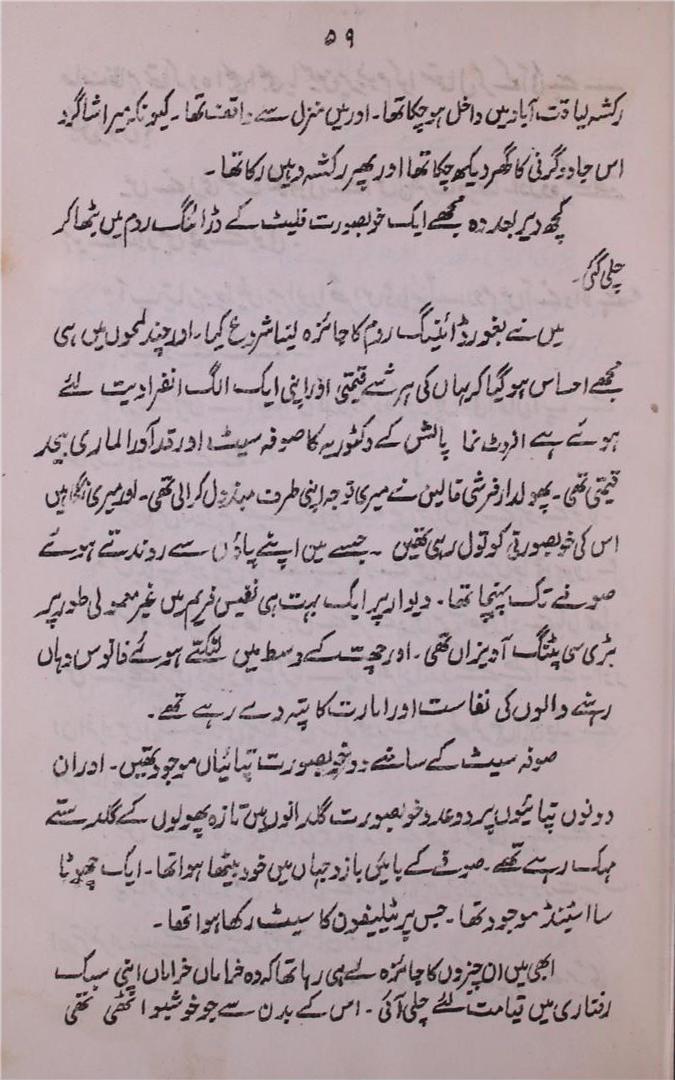 ۵۹
رکشہ لیاقت آباد میں داخل ہو چکا تھا۔ اور میں منزل سے واقف تھا۔ کیونکہ میرا شاگرد
اس جادوگرنی کا گھر دیکھ چکا تھا اور پھر رکشہ وہیں رکا تھا۔
کچھ دیر بعد وہ مجھے ایک خوبصورت فلیٹ کے ڈرائنگ روم میں بٹھا کر
چلی گئی۔
میں نے بغور ڈرائینگ روم کا جائزہ لینا شروع کیا۔ اور چند لمحوں میں ہی
مجھے احساس ہو گیا کہ یہاں کی ہر شے قیمتی اور اپنی ایک الگ انفرادیت لئے
ہوئے ہے اخروٹ نما پالش کے وکٹوریہ کا صوفہ سیٹ اور قد آور الماری بیحد
قیمتی تھی۔ پھولدار فرشی قالین نے میری توجہ اپنی طرف مبذول کرالی تھی۔ اور میری نگاہیں
اس کی خوبصورتی کو تول رہی تھیں ۔ جسے میں اپنے پاؤں سے روندتے ہوئے
صوفے تک پہنچا تھا۔ دیوار پر ایک بہت ہی نفیس فریم میں غیر معمولی طور پر
بڑی سی پٹنگ آویزاں تھی۔ اور چھت کے وسط میں لٹکتے ہوئے فانوس وہاں
رہنے والوں کی نفاست اور امارت کا پتہ دے رہے تھے۔
صوفہ سیٹ کے سامنے دو خوبصورت تپائیاں موجود تھیں۔ اور ان
دونوں تپائیوں پر دو عدد خوبصورت گلدانوں میں تازہ پھولوں کے گلدستے
مہک رہے تھے۔ صوفے کے بائیں بازو جہاں میں خود بیٹھا ہوا تھا۔ ایک چھوٹا
سا اسٹینڈ موجود تھا۔ جس پر ٹیلیفون کا سیٹ رکھا ہوا تھا۔
ابھی میں ان چیزوں کا جائزہ لے ہی رہا تھا کہ وہ خراماں خراماں اپنی سبک
رفتاری میں قیامت لئے چلی آئی۔ اس کے بدن سے جو خوشبو اٹھی تھی